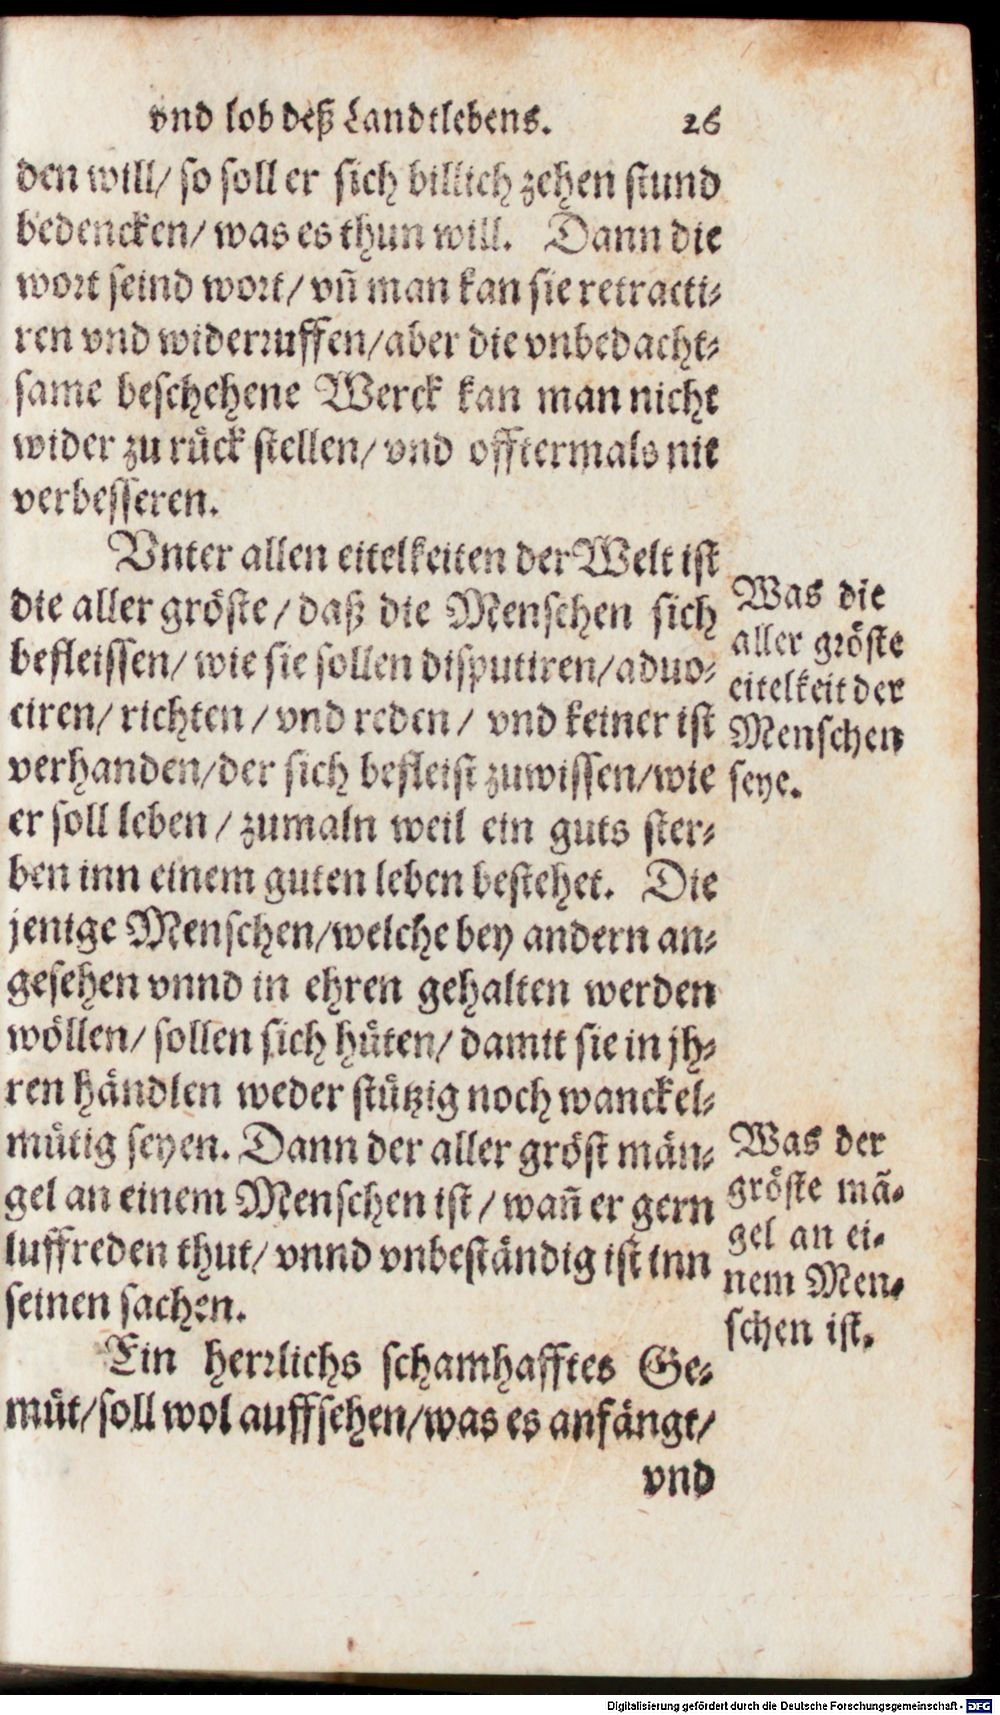 vnd lob deß Landtlebens. 26
den will/ so soll er sich billich zehen stund
bedencken/ was es thun will. Dann die
wort seind wort/ vñ man kan sie retracti-
ren vnd widerruffen/ aber die vnbedacht-
same beschehene Werck kan man nicht
wider zu rück stellen/ vnd offtermals nie
verbesseren.
Vnter allen eitelkeiten der Welt ist
die aller gröste/ daß die Menschen sich
befleissen/ wie sie sollen disputiren/ aduo-
ciren/ richten/ vnd reden/ vnd keiner ist
verhanden/ der sich befleist zuwissen/ wie
er soll leben/ zumaln weil ein guts ster-
ben inn einem guten leben bestehet. Die
jenige Menschen/ welche bey andern an-
gesehen vnnd in ehren gehalten werden
wöllen/ sollen sich hüten/ damit sie in jh-
ren händlen weder stützig noch wanckel-
mütig seyen. Dann der aller gröst män-
gel an einem Menschen ist/ wañ er gern
luffreden thut/ vnnd vnbeständig ist inn
seinen sachen.
Ein herrlichs schamhafftes Ge-
müt/ soll wol auffsehen/ was es anfängt/
vnd
Was die
aller gröste
eitelkeit der
Menschen
seye.
Was der
gröste mã-
gel an ei-
nem Men-
schen ist.
Digitalisierung gefördert durch die Deutsche Forschungsgemeinschaft - DFG